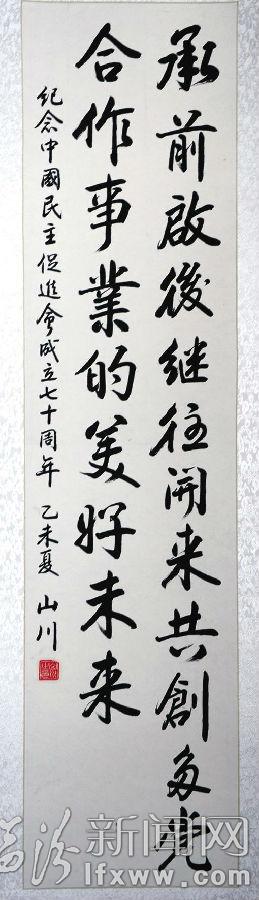 承前啟後继往開来共創多党
合作事業的美好未来
纪念中國民主促進會成立七十周年 乙未夏 山川
临汾新闻网
lfxww.com